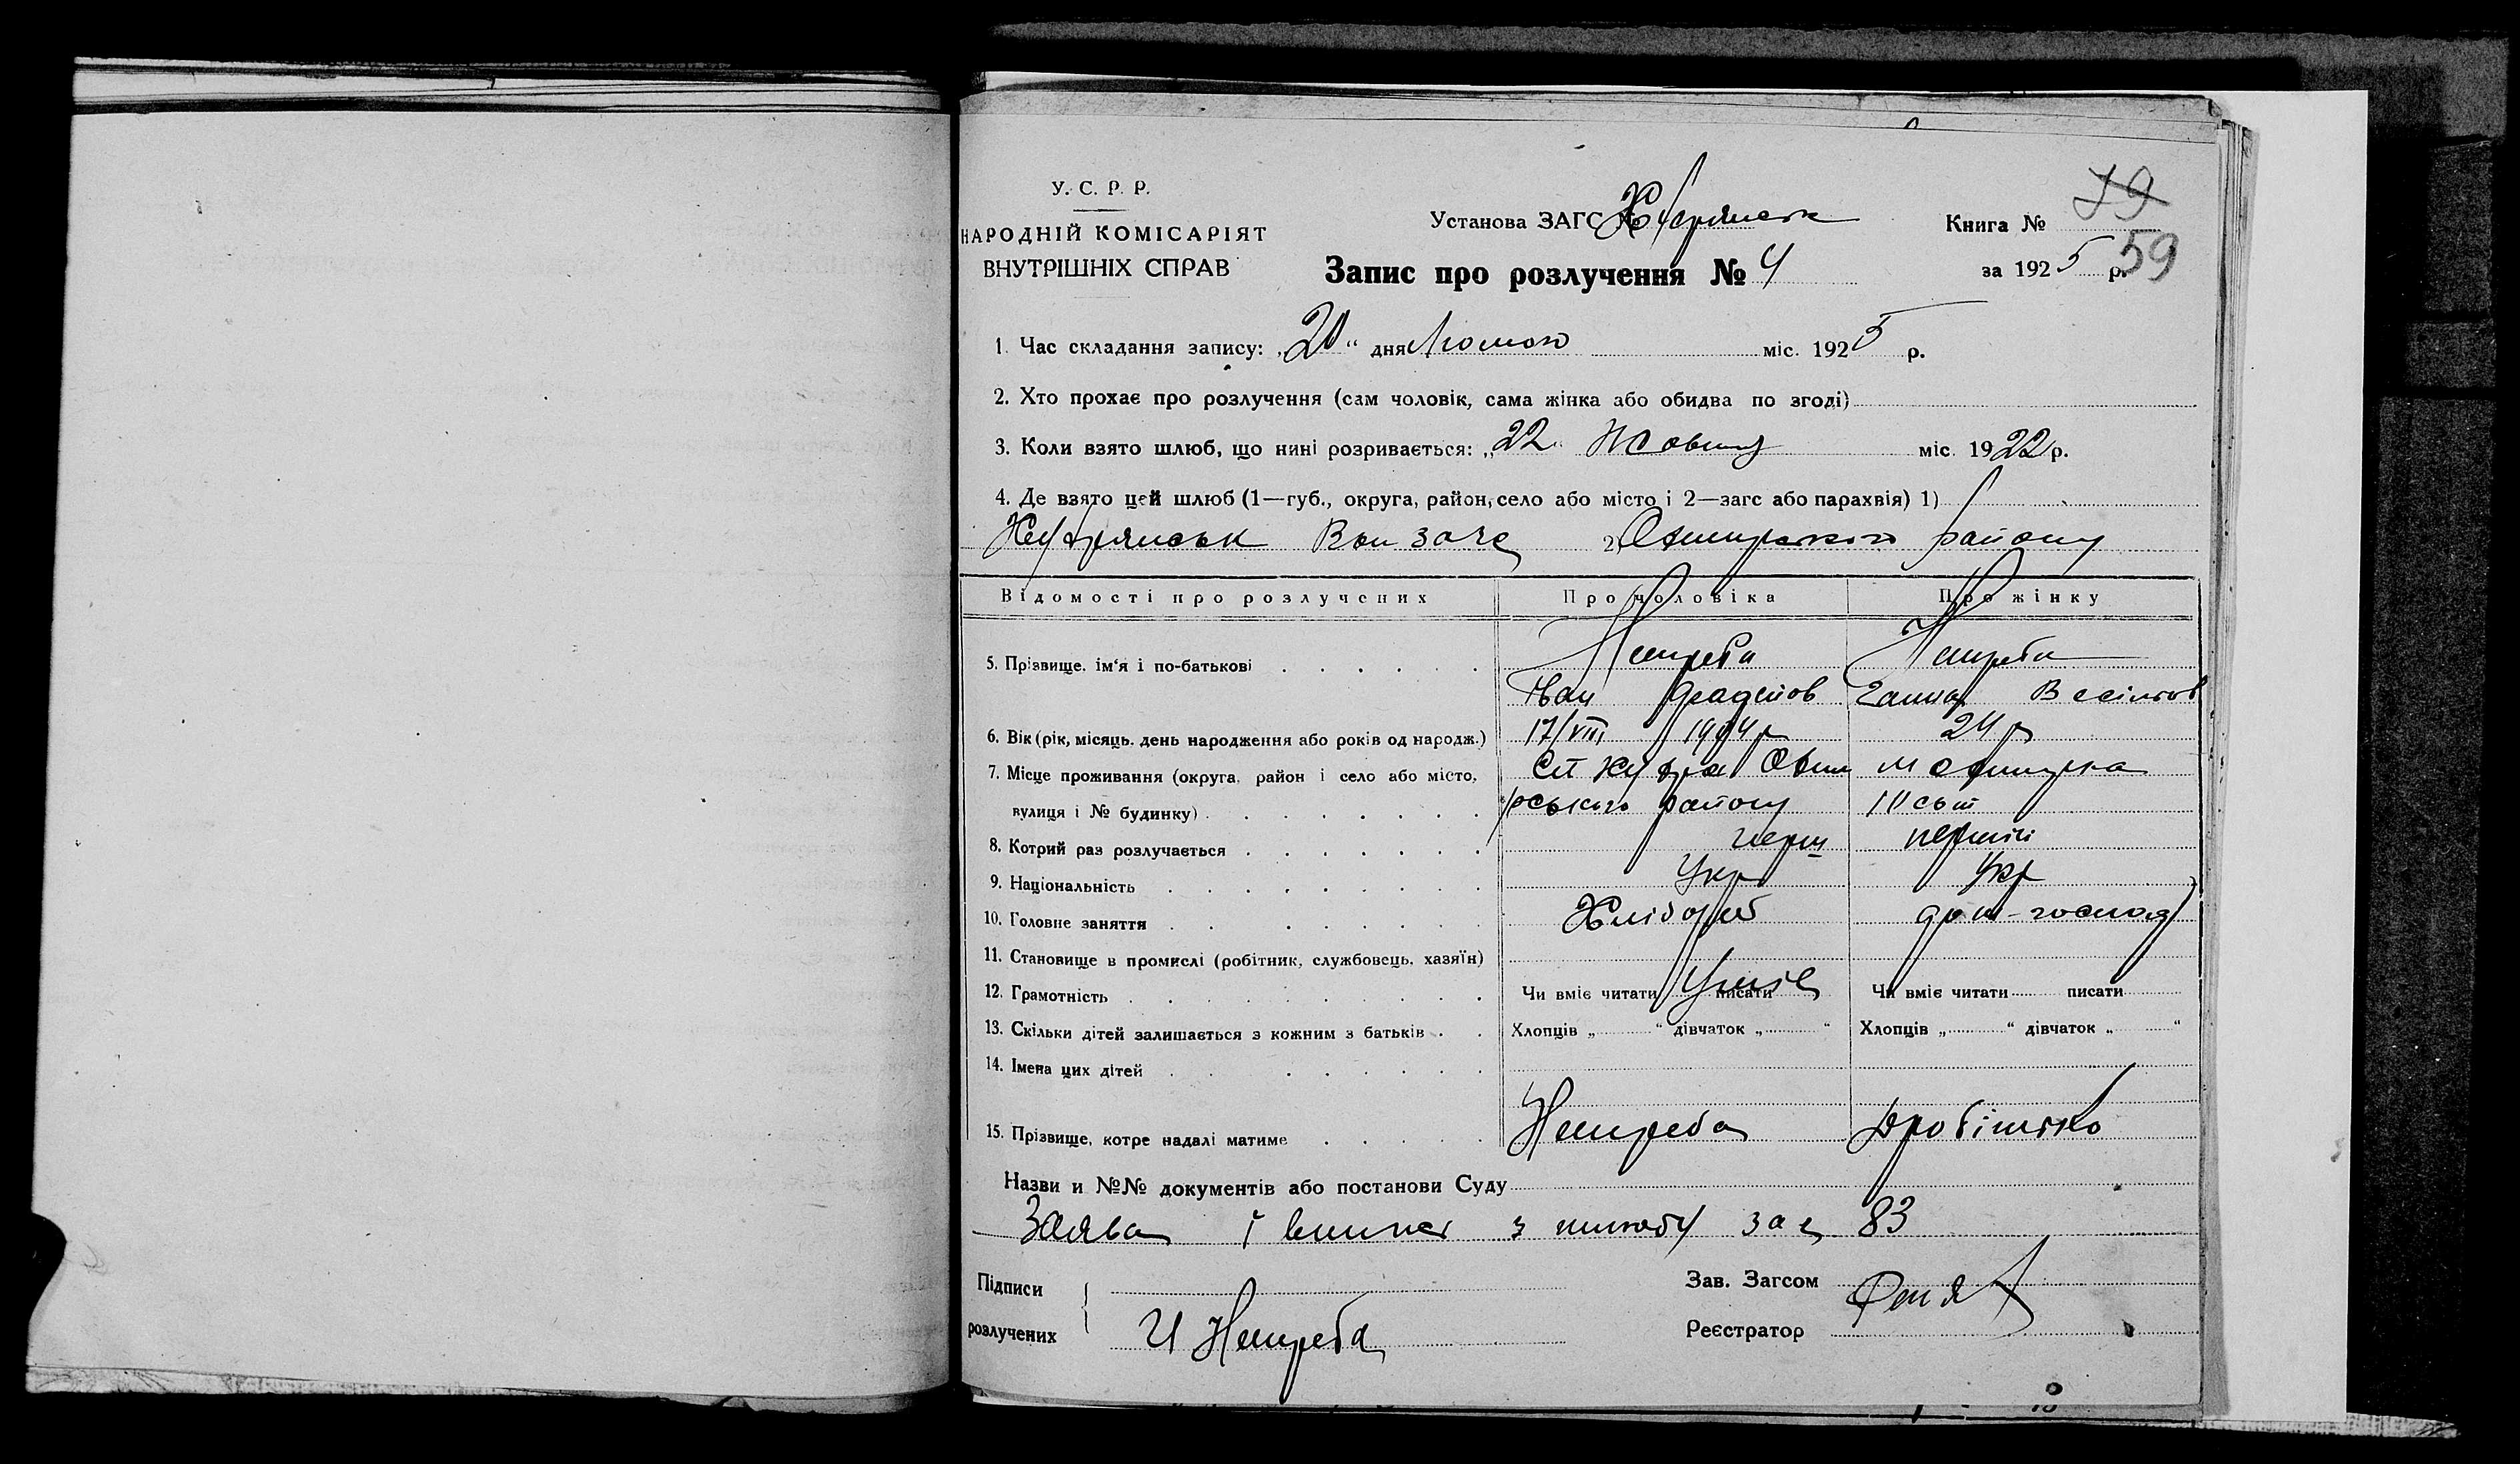 79
У. С. Р. Р.
НАРОДНІЙ КОМІСАРІЯТ
ВНУТРІШНІХ СПРАВ
Установа ЗАГС №
Книга №
59
Запис про розлучення № 4
за 1925 р.
1. Час складання запису: „20“ дня Лютого міс. 1925 р.
2. Хто прохає про розлучення (сам чоловік, сама жінка або обидва по згоді)
3. Коли взято шлюб, що нині розривається: „22 Жовтня міс. 1922 р.
4. Де взято цей шлюб (1—губ., округа, район, село або місто і 2—загс або парахвія) 1)
2) району
Відомості про розлучених Про чоловіка Про жінку
5. Прізвище, ім‘я і по-батькові Непреба Непреба
Іван Ганна
6. Вік (рік, місяць, день народження або років од народж.) 17/VIII 1904 р 24 р
7. Місце проживання (округа, район і село або місто,
вулиця і № будинку) рського району
8. Котрий раз розлучається перш перший
9. Національність Укр Укр
10. Головне заняття Хлібороб дом-господ
11. Становище в промислі (робітник, службовець, хазяїн)
12. Грамотність Чи вміє читати писати Уміє Чи вміє читати писати
13. Скільки дітей залишається з кожним з батьків Хлопців „ “ дівчаток „ “ Хлопців „ “ дівчаток „ “
14. Імена цих дітей
15. Прізвище, котре надалі матиме Непреба
Назви и №№ документів або постанови Суду
Заява і випис з шлюбу за № 83
Підписи
розлучених
И Непреба
Зав. Загсом
Реєстратор